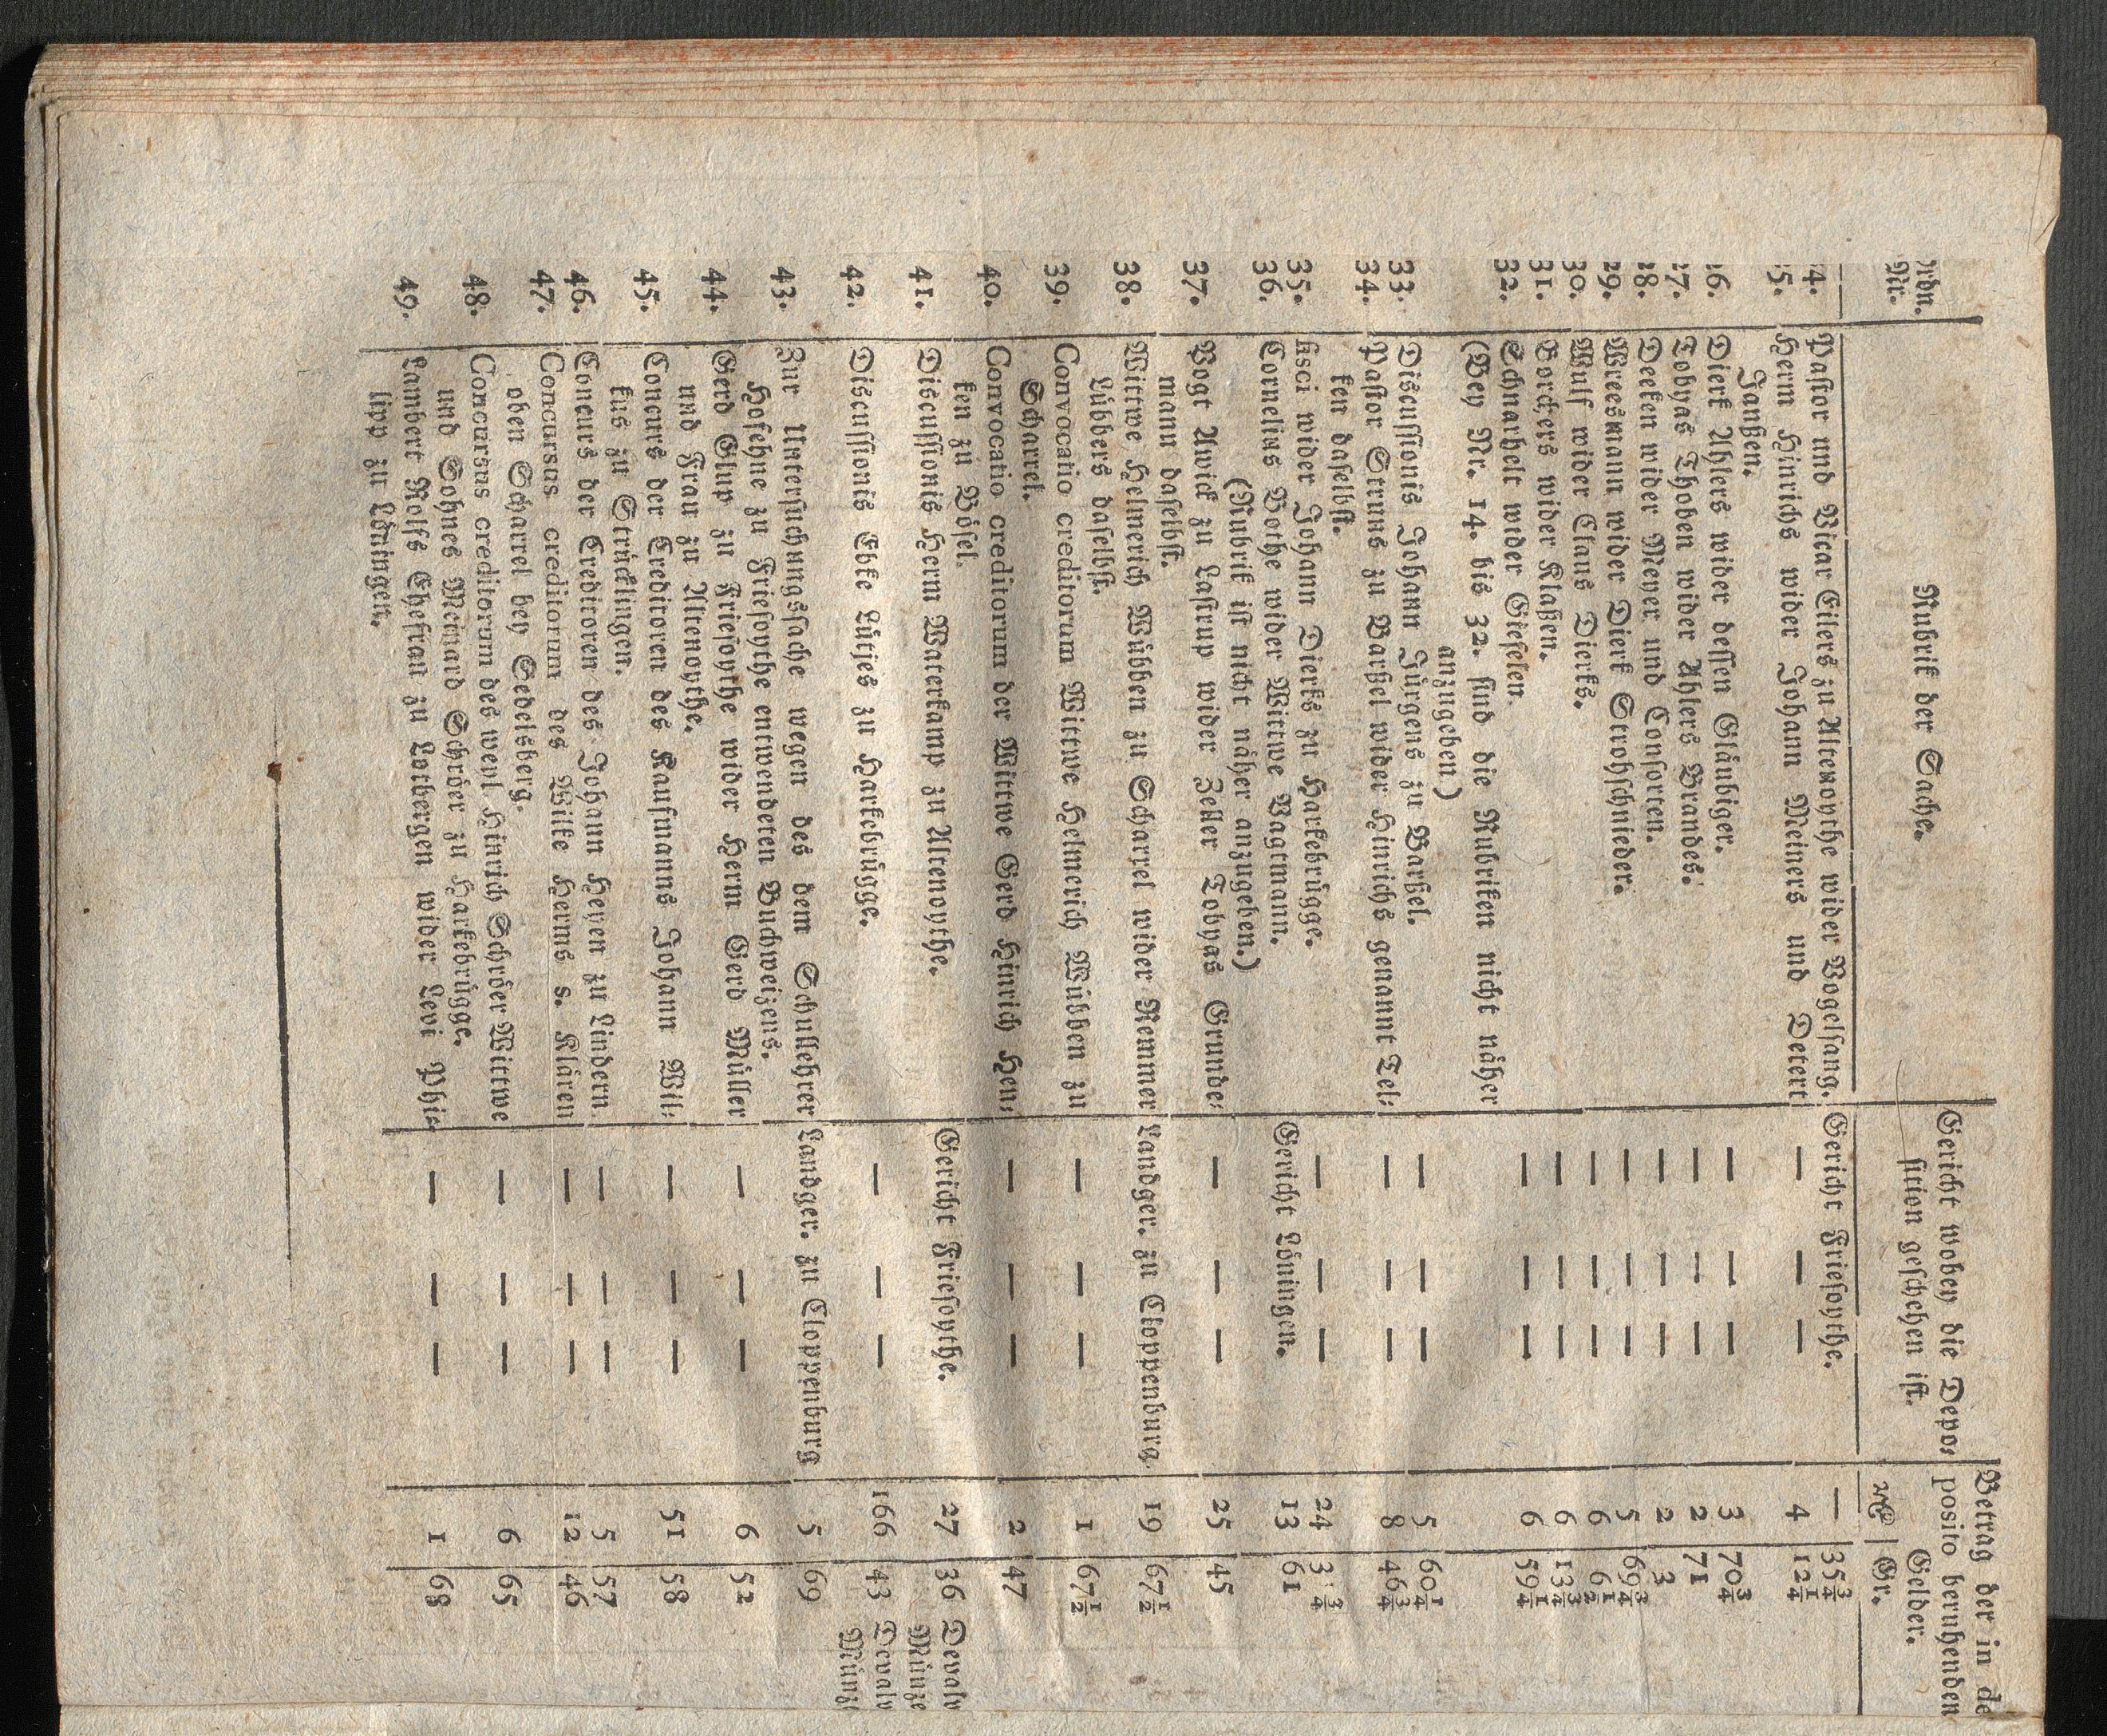 rdn. Nr. | Rubrik der Sache. | Gericht wobey die Depo⸗ sition geschehen ist. | Betrag der in de posito beruhenden Gelder. Rthlr. | Gr.
4. Pastor und Vicar Eilers zu Altenoythe wider Vogelsang. Gericht Friesoythe. — 35¾
5. Herm Hinrichs wider Johann Meiners und Detert — — — 4 12¼
Janßen.
16. Dierk Ahlers wider dessen Gläubiger. — — — 3 70¾
17. Tobyas Thoben wider Ahlers Brandes. — — — 2 71
18. Deeken wider Meyer und Consorten. — — — 2 3
29. Wreesmann wider Dierk Strohschnieder. — — — 5 69¾
30. Wulf wider Claus Dierks. — — — 6 6½
31. Borchers wider Klaßen. — — — 6 13¾
32. Schnarhelt wider Gieselen. — — — 6 59¼
(Bey Nr. 14. bis 32. sind die Rubriken nicht näher
anzugeben.)
33. Discussionis Johann Jürgens zu Barßel. — — — 5 60¼
34. Pastor Struns zu Barßel wider Hinrichs genannt Tel⸗ — — — 8 46¾
ken daselbst.
35. fisci wider Johann Dierks zu Harkebrügge. — — — 24 3¾
36. Cornelius Bothe wider Wittwe Bagtmann. Gericht Löningen. 13 61
(Rubrik ist nicht näher anzugeben.)
37. Vogt Uwick zu Lastrup wider Zeller Tobyas Grunde⸗ — — — 25 45
mann daselbst.
38. Wittwe Helmerich Wübben zu Scharrel wider Remmer Landger. zu Cloppenburg. 19 67½
Lübbers daselbst.
39. Convocatio creditorum Wittwe Helmerich Wübben zu — — — 1 67½
Scharrel.
40. Convocatio creditorum der Wittwe Gerd Hinrich Hen⸗ — — — 2 47
ken zu Bösel.
41. Discussionis Herm Waterkamp zu Altenoythe. Gericht Friesoythe. 27 36 Devalv
Münze
42. Discussionis Ebke Lütjes zu Harkebrügge. — — — 166 43 Devalv
Münz
43. Zur Untersuchungssache wegen des dem Schullehrer Landger. zu Cloppenburg 5 69
Hosehne zu Friesoythe entwendeten Buchweizens.
44. Gerd Glup zu Friesoythe wider Herm Gerd Müller — — — 6 52
und Frau zu Altenoythe.
45. Concurs der Creditoren des Kaufmanns Johann Wil⸗ — — — 51 58
kus zu Strücklingen.
46. Concurs der Creditoren des Johann Heyen zu Lindern — — — 5 57
47. Concursus creditorum des Wilke Herms s. Klären — — — 12 46
oben Scharrel bey Sedelsberg.
48. Concursus creditorum des weyl Hinrich Schröer Wittwe — — — 6 65
und Sohnes Meinard Schröer zu Harkebrügge.
49. Lambert Rolfs Ehefrau zu Latbergen wider Levi Phi⸗ — — — 1 68
lipp zu Löningen.